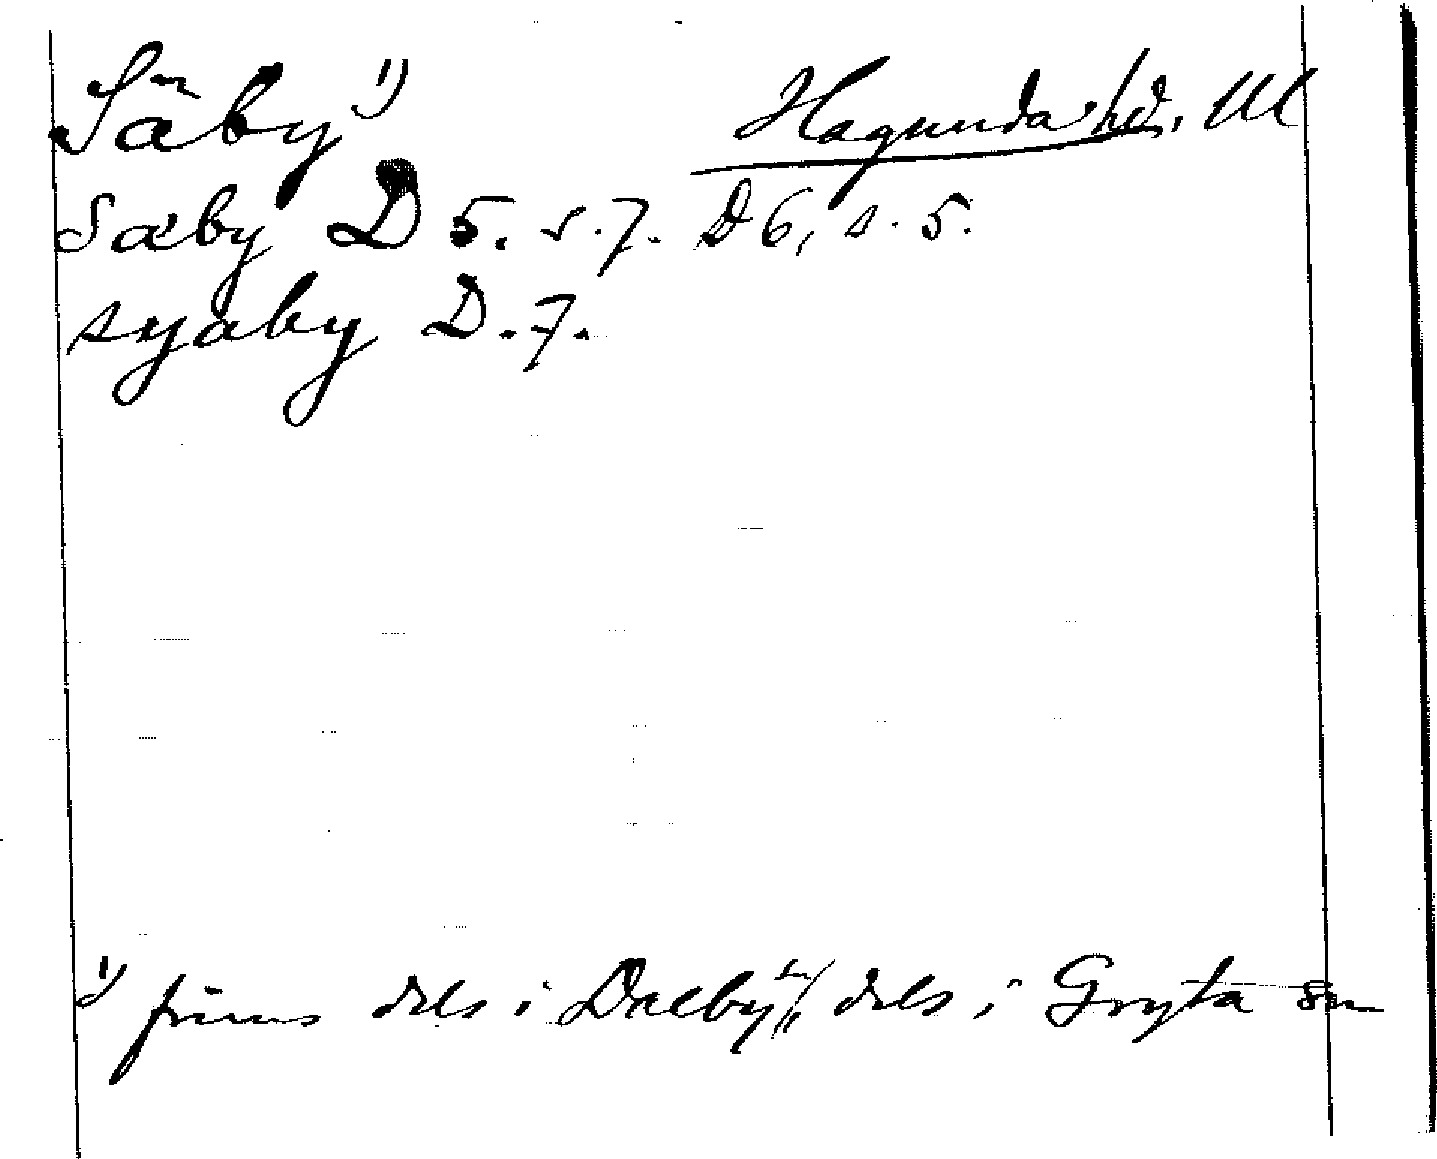 Säby 1) Hagunda hd. Ul
Sæby D 5. s. 7. D 6, s. 5.
syaby D. 7.
1) finns dels i Dalby dels i Gryta sn